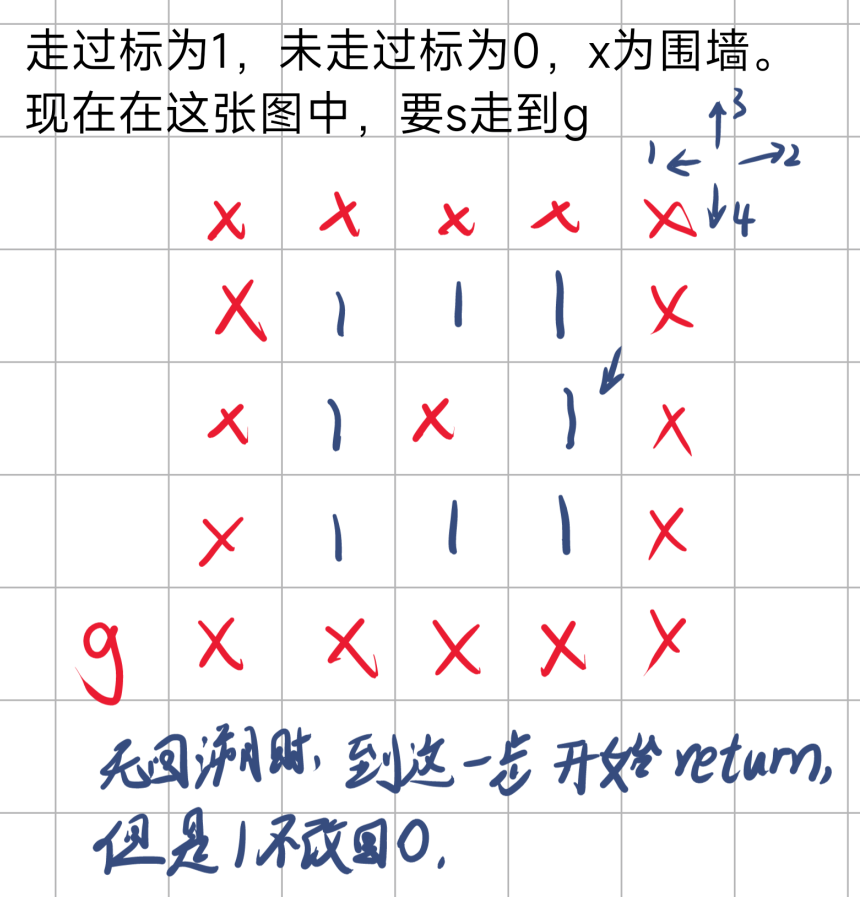 走过标为1，未走过标为0，x为围墙。
现在在这张图中，要s走到g
3
1 2
x x x x x 4
x 1 1 1 x
x 1 x 1 x
x 1 1 1 x
g x x x x x
无回溯时，到这一步开始return，
但是1不改回0．